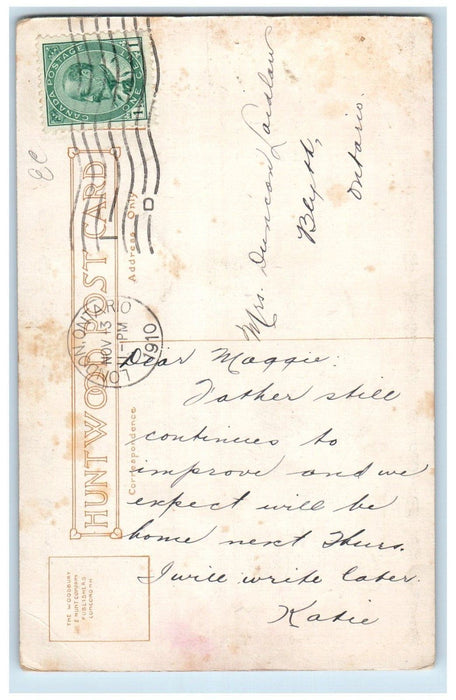 CANADA POSTAGE
ONE CENT
EC
HUNTWOOD POST CARD
Address Only
Correspondence
LONDON ONTARIO
NOV 13
11-PM
1910
D
Mrs. Duncan Laidlaw
Blyth,
Ontario.
Dear Maggie:
Father still
continues to
improve and we
expect will be
home next Thurs.
I will write later.
Katie
THE WOODBURY
E HUNT COMPANY
PUBLISHERS
CONCORD NH